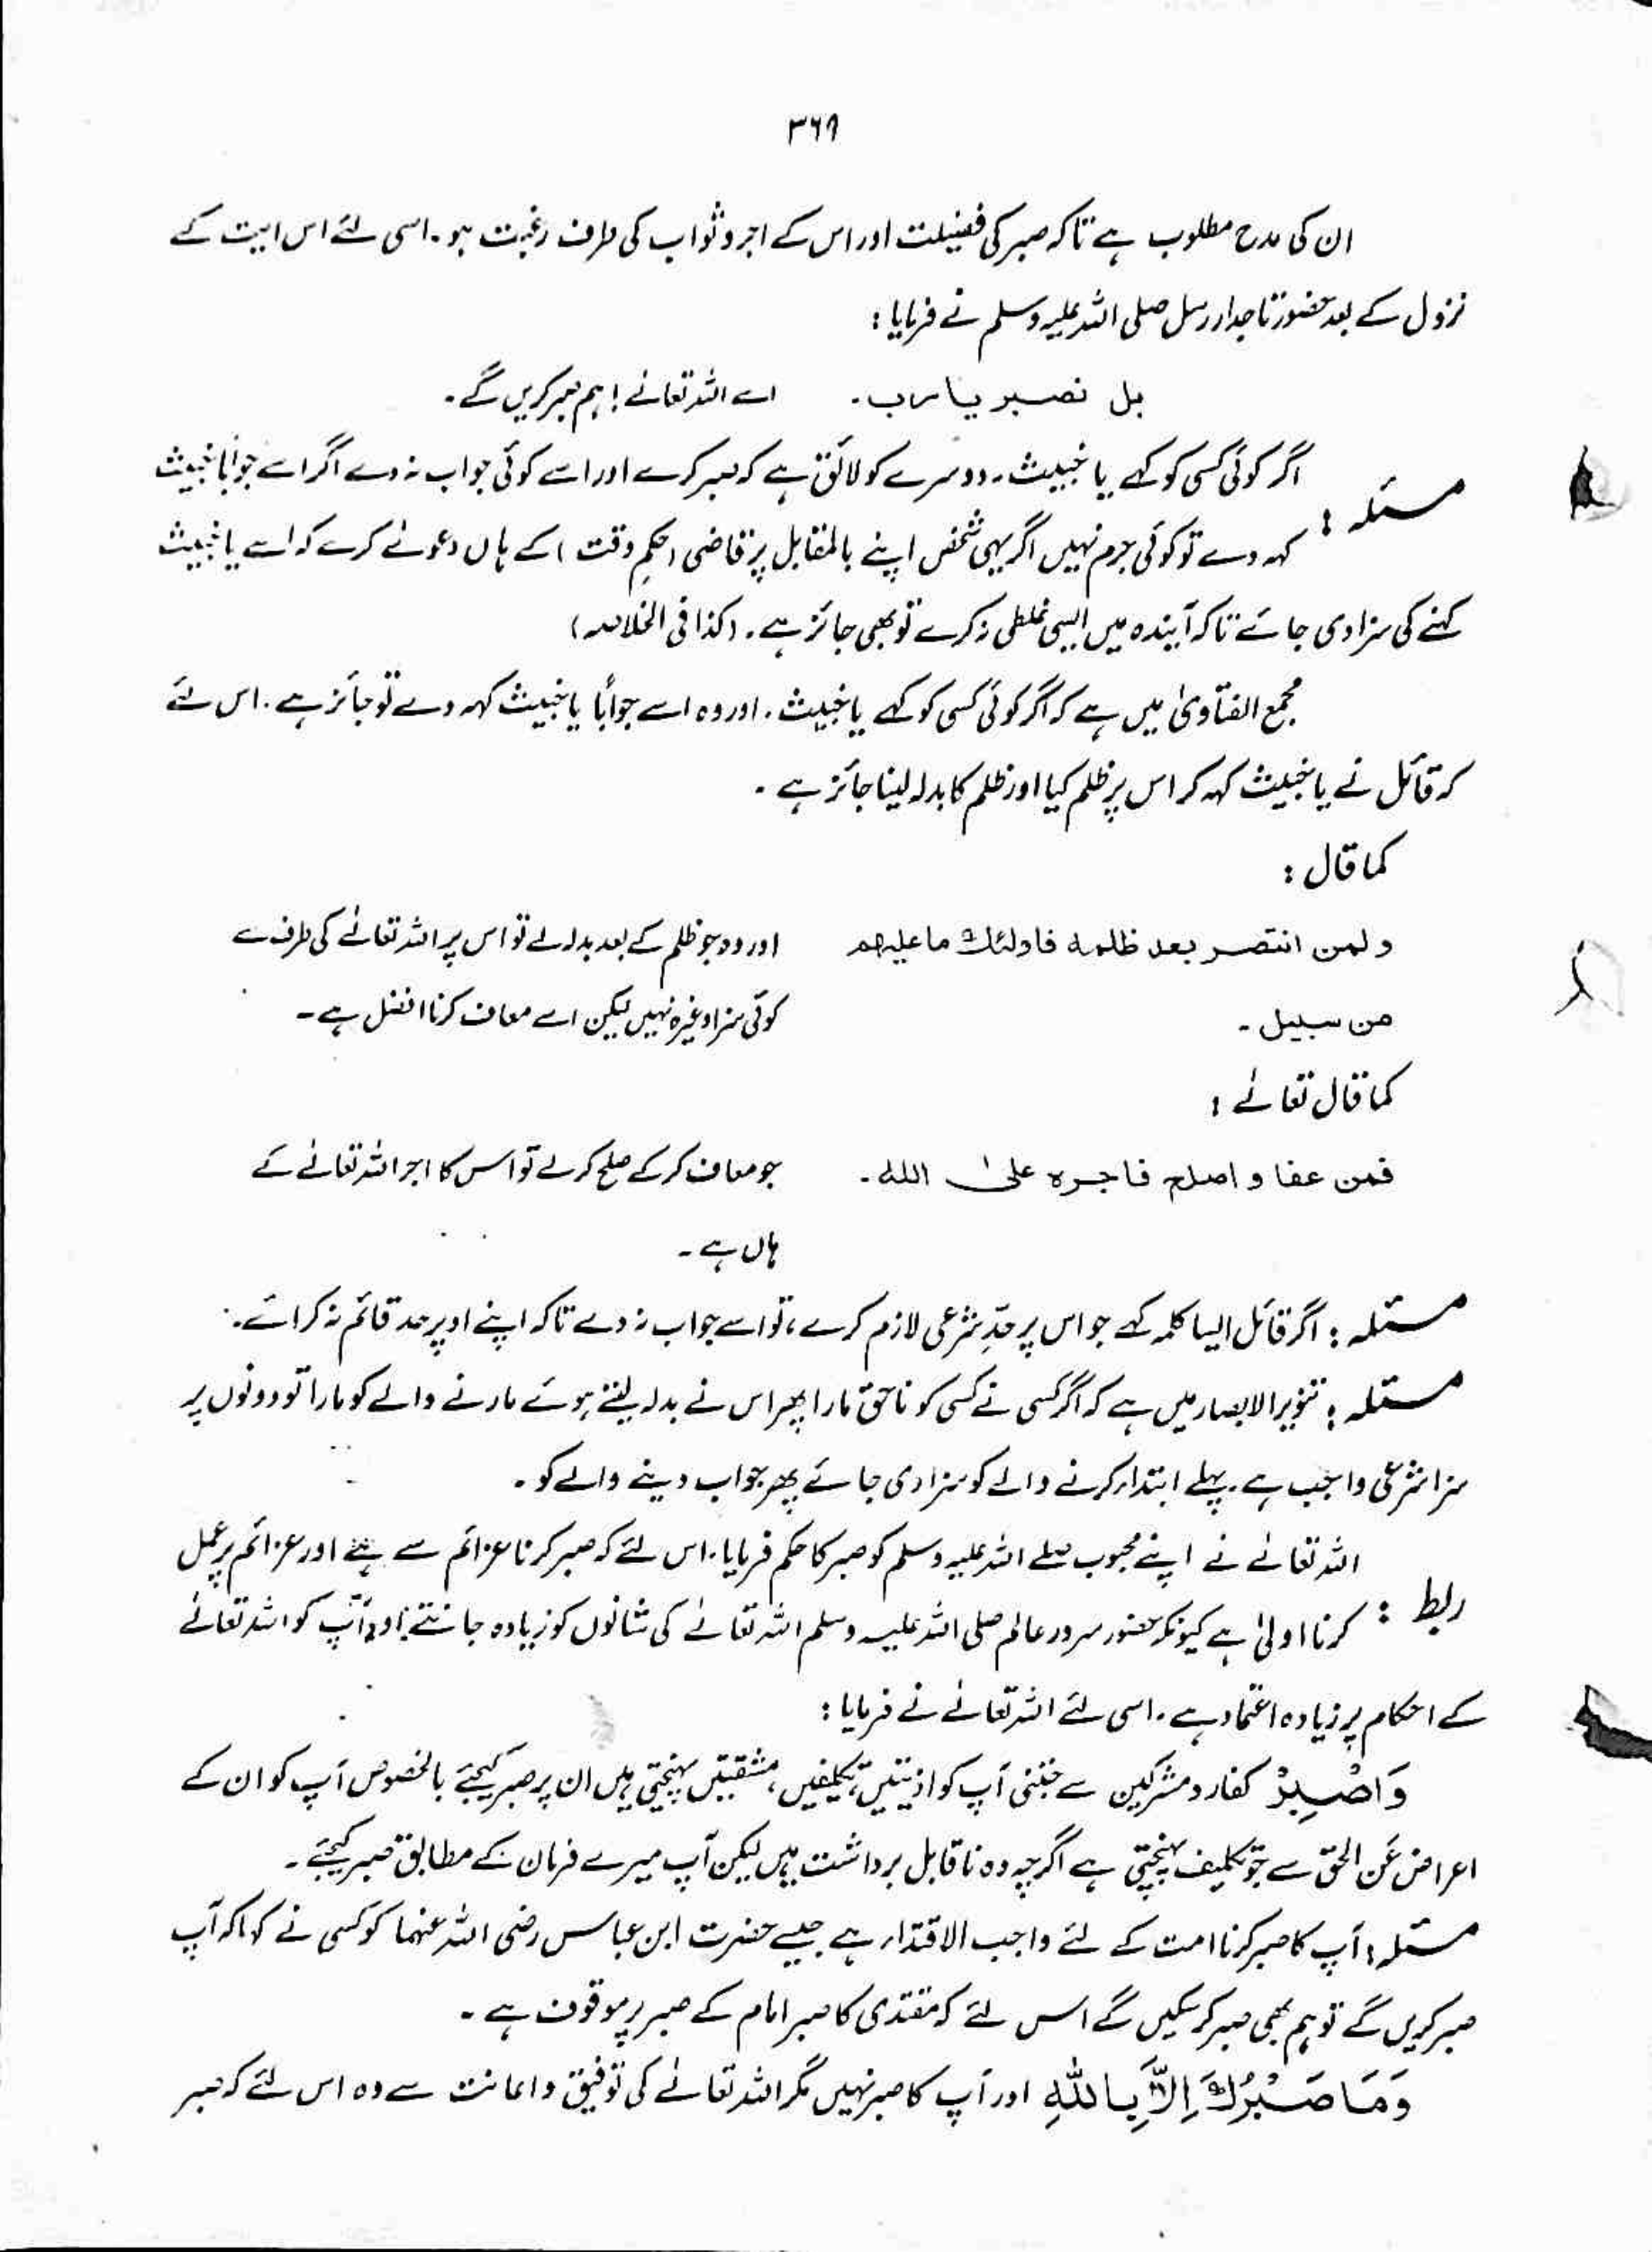 ۳۶۹
ان کی مدح مطلوب ہے تاکہ صبر کی فضیلت اور اس کے اجر و ثواب کی طرف رغبت ہو۔ اسی لئے اس ایت کے
نزول کے بعد حضور تاجدار رسل صلی اللہ علیہ وسلم نے فرمایا :
بل نصبر یا رب۔ اے اللہ تعالے ! ہم صبر کریں گے۔
مسئلہ : اگر کوئی کسی کو کہے یا خبیث۔ دوسرے کو لائق ہے کہ صبر کرے اور اسے کوئی جواب نہ دے اگر اسے جواباً خبیث
کہہ دے تو کوئی جرم نہیں اگر یہی شخص اپنے بالمقابل پر قاضی (حکمِ وقت) کے ہاں دعوٰے کرے کہ اسے یا خبیث
کہنے کی سزا دی جائے تاکہ آیندہ میں ایسی غلطی نہ کرے تو بھی جائز ہے۔ (کذا فی الخلاصہ)
مجمع الفتاویٰ میں ہے کہ اگر کوئی کسی کو کہے یا خبیث۔ اور وہ اسے جواباً یا خبیث کہہ دے تو جائز ہے۔ اس لئے
کہ قائل نے یا خبیث کہہ کر اس پر ظلم کیا اور ظلم کا بدلہ لینا جائز ہے ۔
کما قال :
ولمن انتصر بعد ظلمہ فاولئك ما علیہم اور وہ جو ظلم کے بعد بدلہ لے تو اس پر اللہ تعالےٰ کی طرف سے
من سبیل۔ کوئی سزا وغیرہ نہیں لیکن اسے معاف کرنا افضل ہے۔
کما قال تعالےٰ :
فمن عفا و اصلح فاجرہ علیٰ اللہ۔ جو معاف کر کے صلح کر لے تو اس کا اجر اللہ تعالےٰ کے
ہاں ہے۔
مسئلہ : اگر قائل ایسا کلمہ کہے جو اس پر حدِّ شرعی لازم کرے، تو اسے جواب نہ دے تاکہ اپنے اوپر حد قائم نہ کرائے۔
مسئلہ : تنویر الابصار میں ہے کہ اگر کسی نے کسی کو ناحق مارا پھر اس نے بدلہ لیتے ہوئے مارنے والے کو مارا تو دونوں پر
سزا شرعی واجب ہے۔ پہلے ابتدار کرنے والے کو سزا دی جائے پھر جواب دینے والے کو ۔
ربط : اللہ تعالےٰ نے اپنے محبوب صلے اللہ علیہ وسلم کو صبر کا حکم فرمایا۔ اس لئے کہ صبر کرنا عزائم سے ہے اور عزائم پر عمل
کرنا اولیٰ ہے کیونکہ حضور سرور عالم صلی اللہ علیہ وسلم اللہ تعالےٰ کی شانوں کو زیادہ جانتے اور آپ کو اللہ تعالےٰ
کے احکام پر زیادہ اعتماد ہے۔ اسی لئے اللہ تعالےٰ نے فرمایا :
وَاصْبِرْ کفار و مشرکین سے جتنی آپ کو اذیتیں، تکلیفیں، مشقتیں پہنچتی ہیں ان پر صبر کیجئے بالخصوص آپ کو ان کے
اعراض عَن الحق سے جو تکلیف پہنچتی ہے اگرچہ وہ ناقابل برداشت ہیں لیکن آپ میرے فرمان کے مطابق صبر کیجئے۔
مسئلہ : آپ کا صبر کرنا امت کے لئے واجب الاقتدار ہے جیسے حضرت ابن عباس رضی اللہ عنہما کو کسی نے کہا کہ آپ
صبر کریں گے تو ہم بھی صبر کر سکیں گے اس لئے کہ مقتدی کا صبر امام کے صبر پر موقوف ہے ۔
وَمَا صَبْرُكَ اِلَّا بِاللّٰهِ اور آپ کا صبر نہیں مگر اللہ تعالےٰ کی توفیق و اعانت سے وہ اس لئے کہ صبر